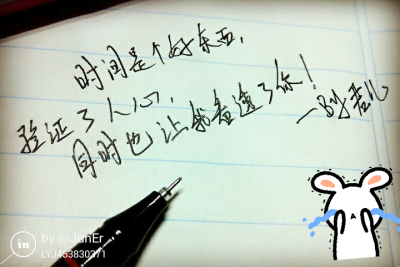 时间是个好东西,
验证了人心,
同时也让我看透了你!
in
by @JunEr
LYJ453830371